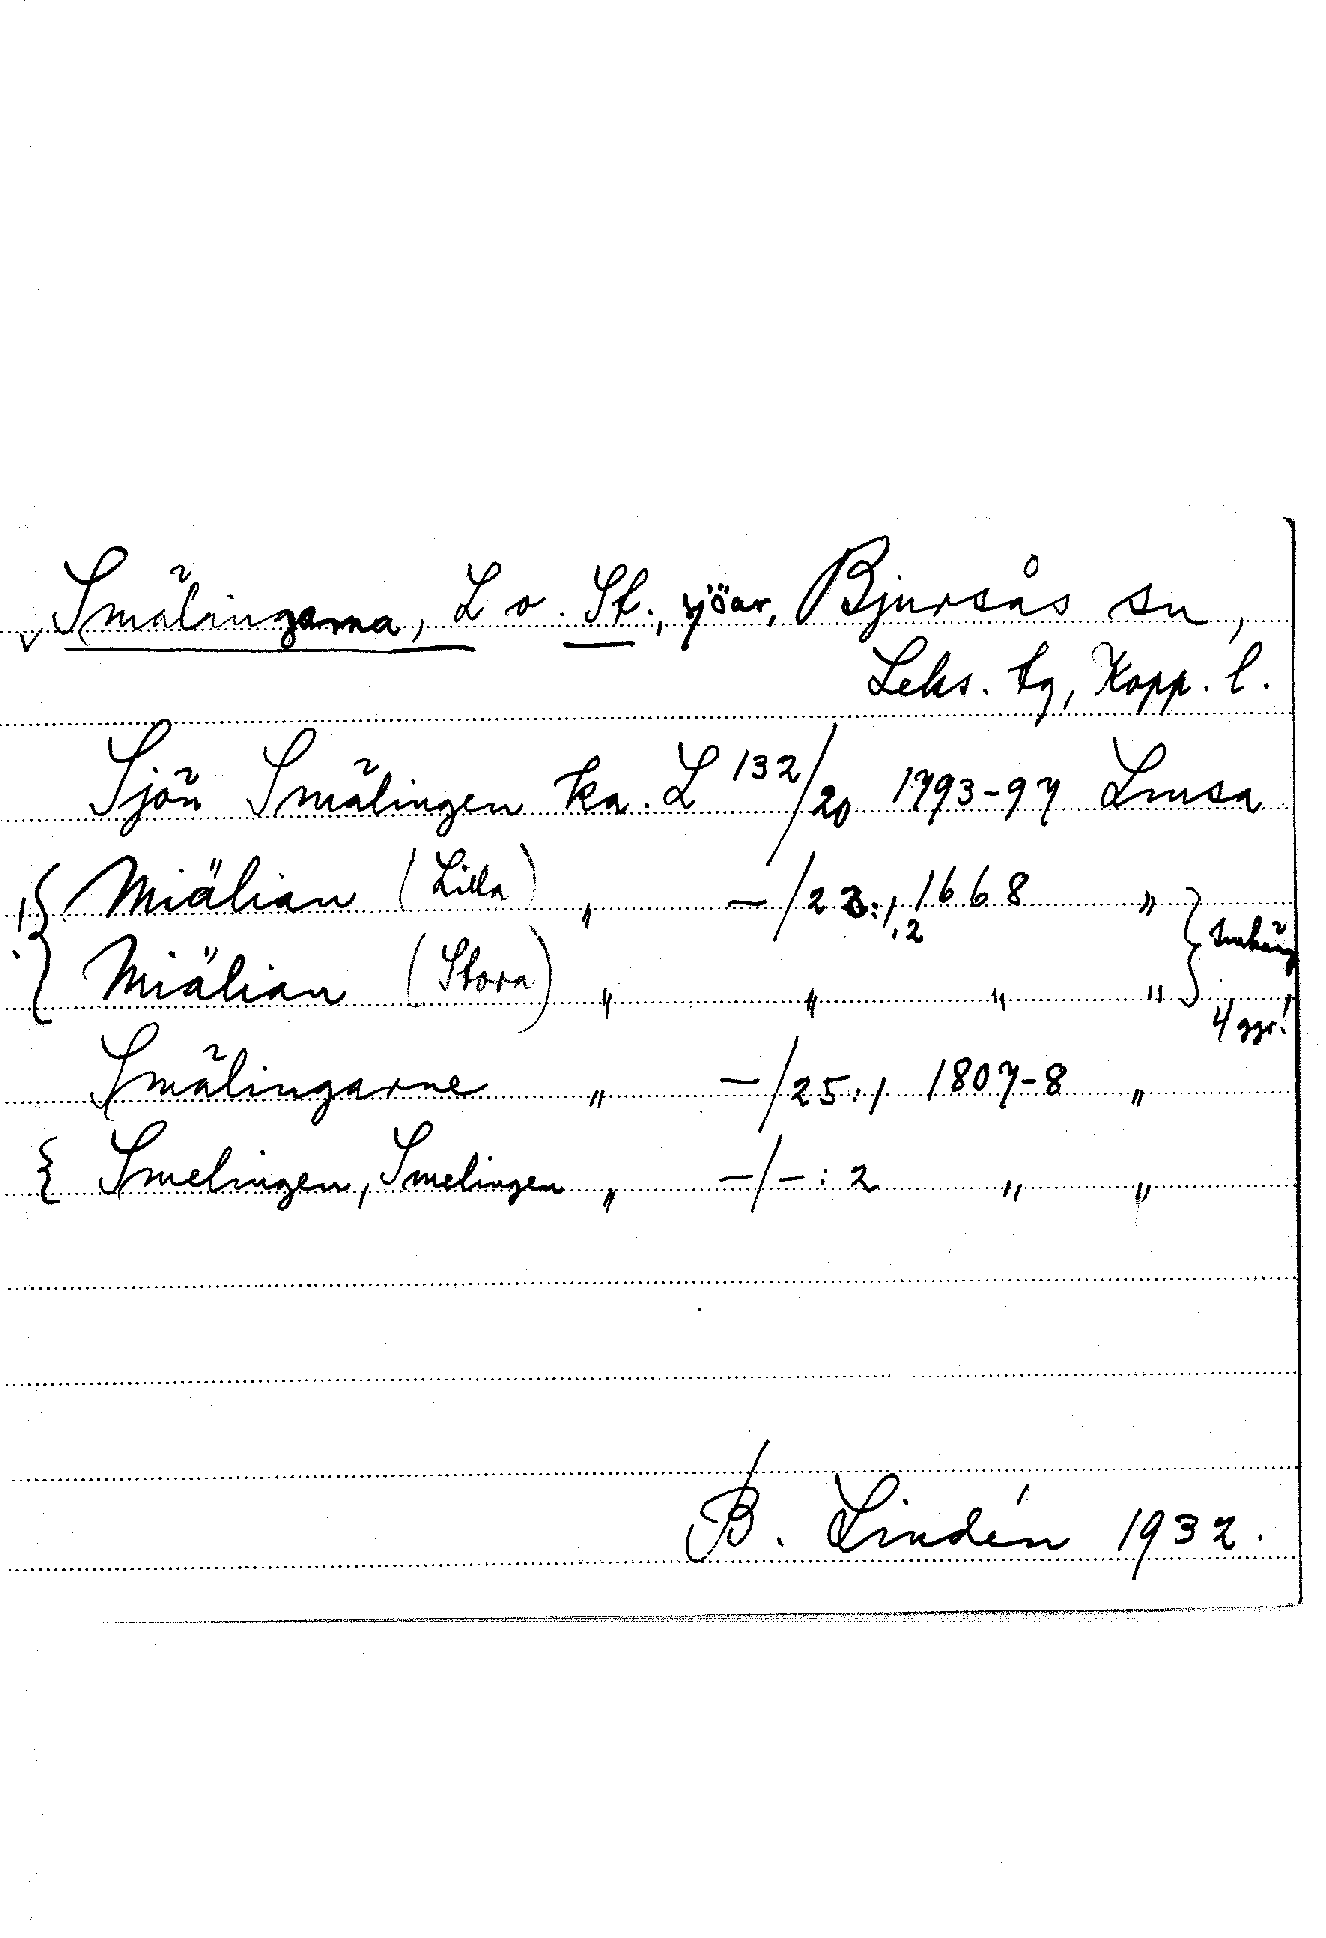 v Smälingarna, L o. St., sjöar, Bjursås sn,
Leks. tg, Kopp. l.
Sjön Smälingen ka. L 132/20 1793-97 Lmsa
! { Miälian (Lilla) " —/23:1,2 1668 " }
Miälian (Stora) " " " " 4 ggr!
Smälingarne " —/25:1 1807-8 "
{ Smelingen, Smelingen " —/—:2 " "
B. Lindén 1932.